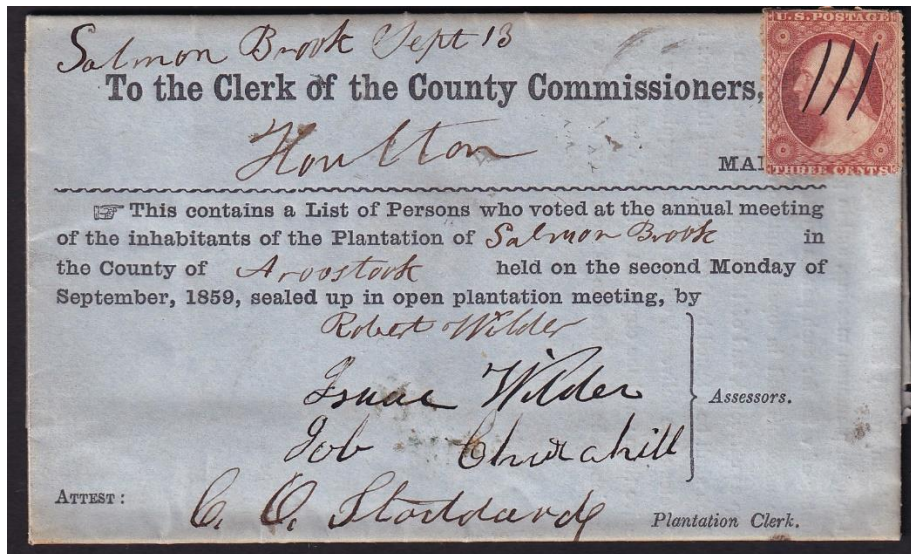 Salmon Brook Sept 13
U.S. POSTAGE
To the Clerk of the County Commissioners,
Houlton
THREE CENTS
☞ This contains a List of Persons who voted at the annual meeting
of the inhabitants of the Plantation of Salmon Brook in
the County of Aroostook held on the second Monday of
September, 1859, sealed up in open plantation meeting, by
Robert Wilder
Isaac Wilder
Assessors.
Job Churchill
ATTEST:
C. O. Stoddard
Plantation Clerk.